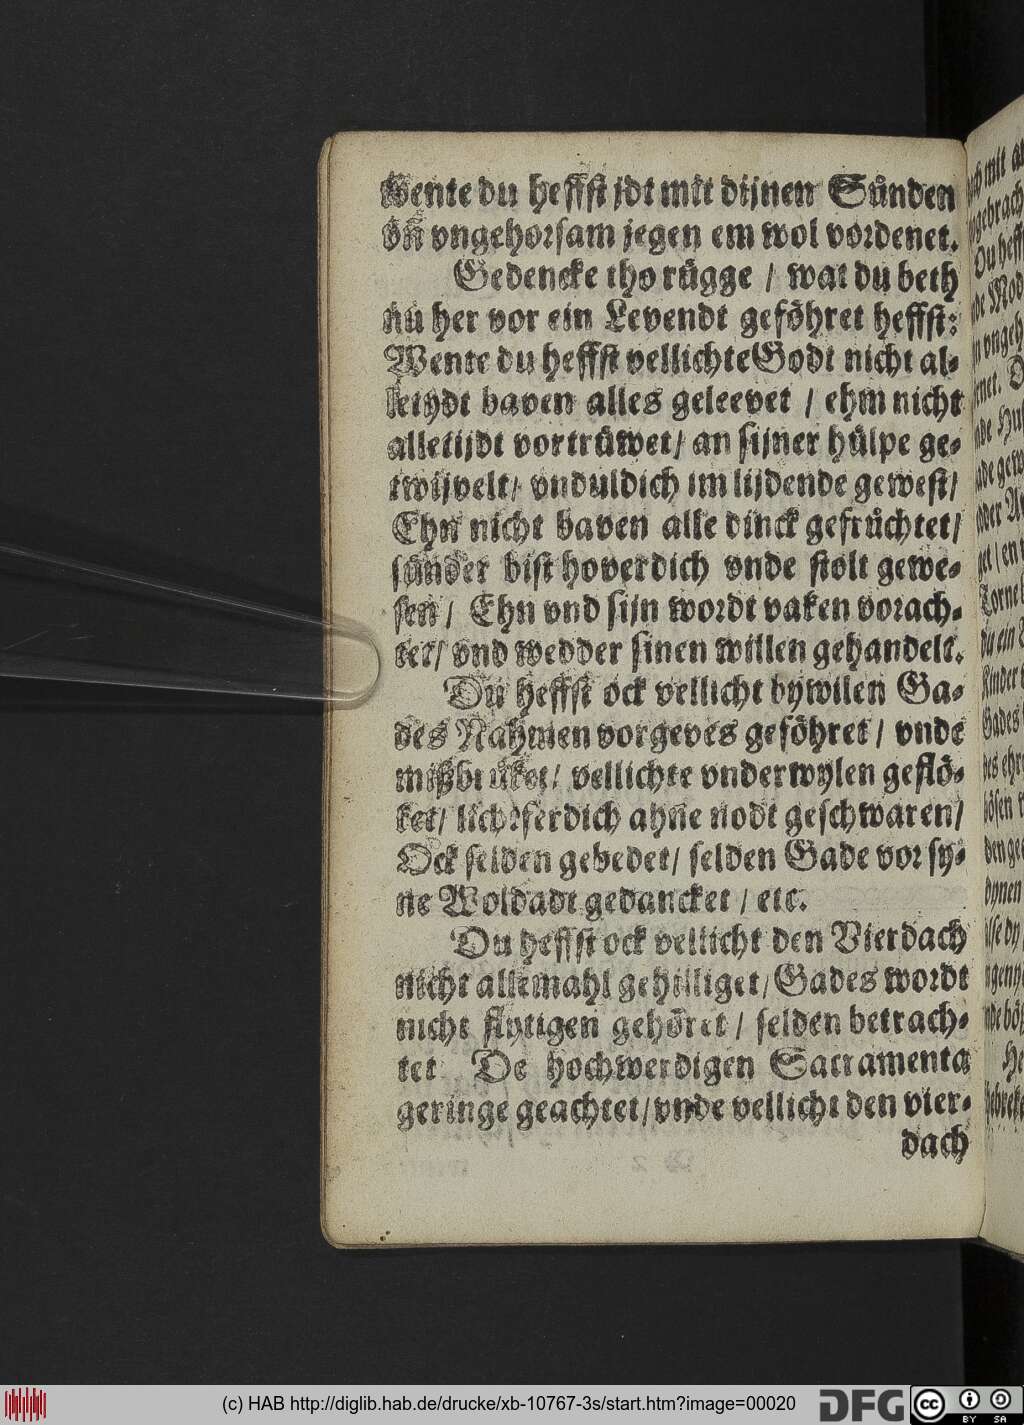 wente du heffst jdt mit dijnen Sünden
vñ vngehorsam jegen em wol vordenet.
Gedencke tho rügge / wat du beth
nu her vor ein Levendt geföhret heffst:
Wente du heffst vellichte Godt nicht al-
letydt baven alles geleevet / ehm nicht
alletijdt vortrüwet / an sijner hülpe ge-
twijvelt / vnduldich im lijdende gewest /
Ehn nicht baven alle dinck gefrüchtet /
sünder bist hoverdich vnde stolt gewe-
sen / Ehn vnd sijn wordt vaken vorach-
tet / vnd wedder sinen willen gehandelt.
Du heffst ock vellicht bywilen Ga-
des Nahmen vorgeves geföhret / vnde
mißbrüket / vellichte vnderwylen geflö-
ket / lichtferdich ahne nodt geschwaren /
Ock selden gebedet / selden Gade vor sy-
ne Woldadt gedancket / etc.
Du heffst ock vellicht den Vierdach
nicht allemahl gehilliget / Gades wordt
nicht flytigen gehöret / selden betrach-
tet De hochwerdigen Sacramenta
geringe geachtet / vnde vellicht den vier-
dach
(c) HAB http://diglib.hab.de/drucke/xb-10767-3s/start.htm?image=00020
DFG
cc
BY SA